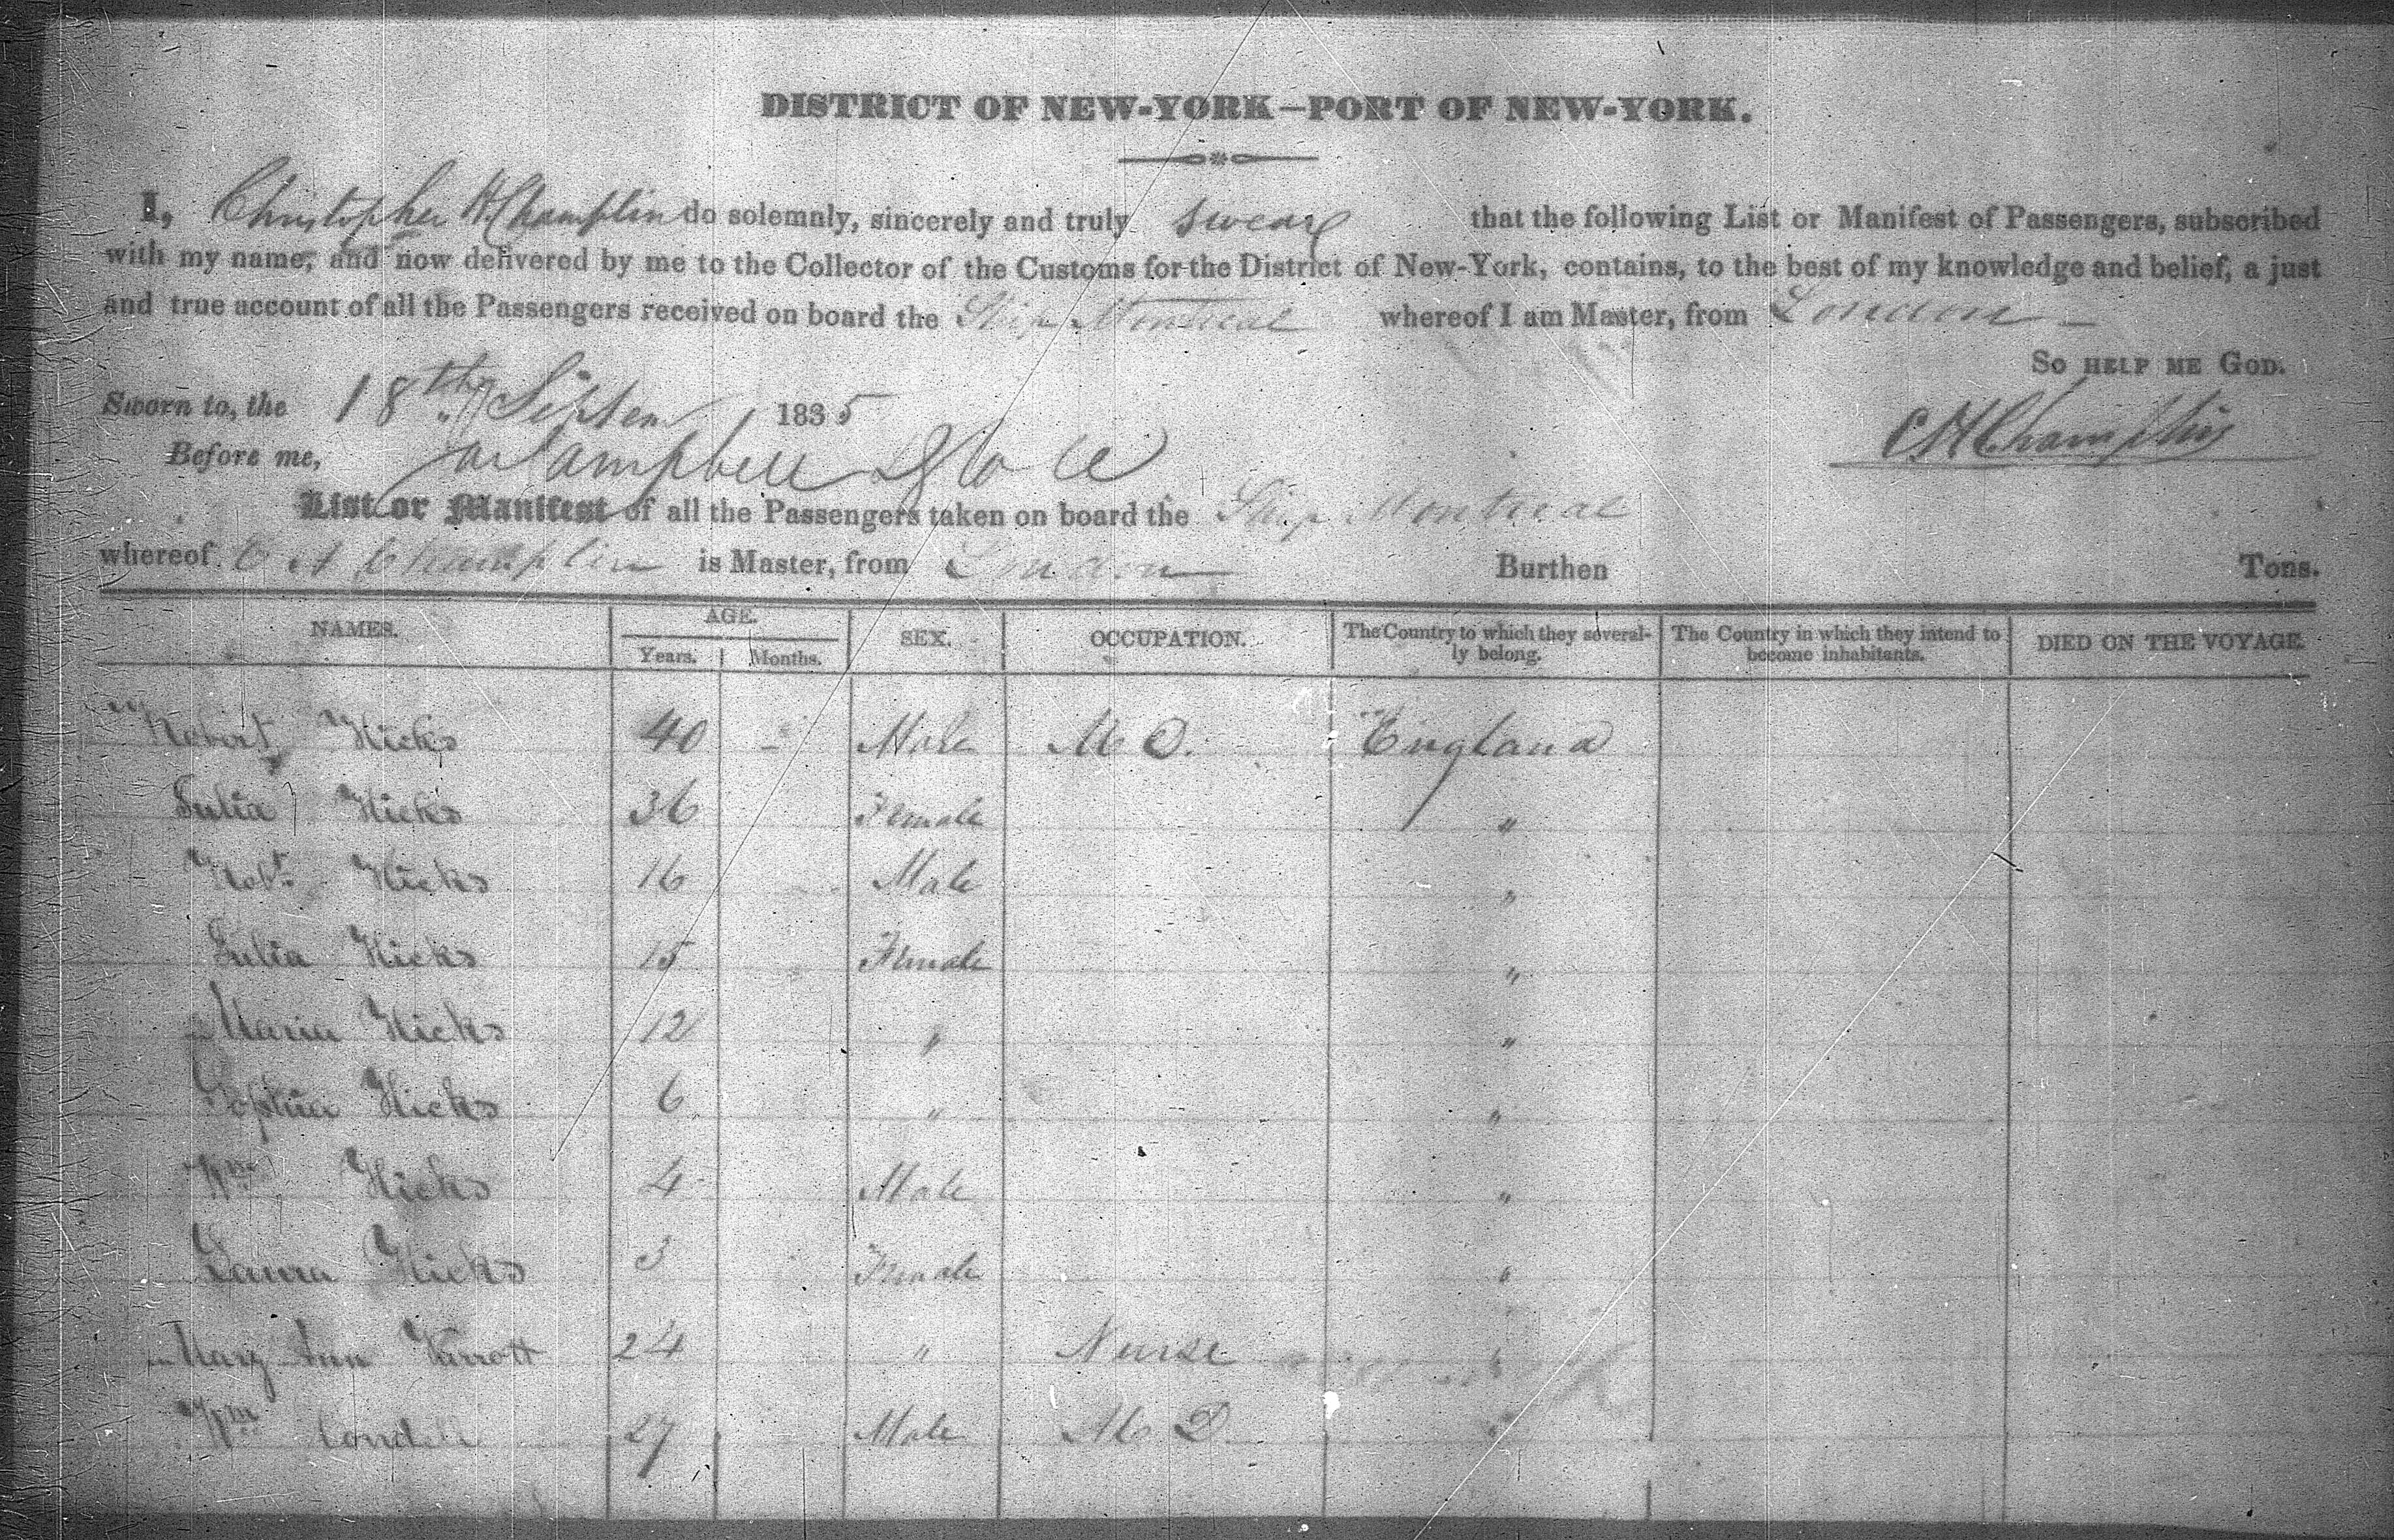 DISTRICT OF NEW-YORK—PORT OF NEW-YORK.
I, Christopher H Champlin do solemnly, sincerely and truly swear that the following List or Manifest of Passengers, subscribed
with my name, and now delivered by me to the Collector of the Customs for the District of New-York, contains, to the best of my knowledge and belief, a just
and true account of all the Passengers received on board the Ship Montreal whereof I am Master, from London
So HELP ME GOD.
Sworn to, the 18th Septem 1835
C H Champlin
Before me, Campbell
List or Manifest of all the Passengers taken on board the Ship Montreal
whereof C H Champlin is Master, from London Burthen Tons.
NAMES. AGE. SEX. OCCUPATION. The Country to which they several- The Country in which they intend to DIED ON THE VOYAGE.
Years. Months. ly belong. become inhabitants.
Robert Hicks 40 - Male M D. England
Julia Hicks 36 Female "
Robt Hicks 16 Male "
Julia Hicks 15 Female "
Maria Hicks 12 " "
Sophia Hicks 6 " "
Wm Hicks 4 Male "
Laura Hicks 3 Female "
Mary Ann 24 " Nurse "
Wm 27 Male M D "